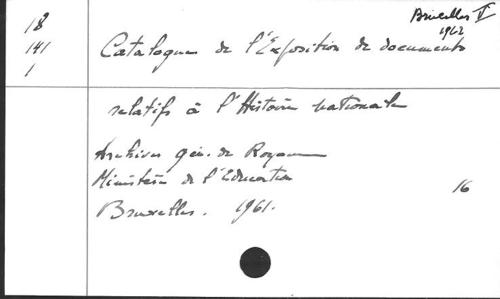 Bruxelles V
1962
18
141
1
Catalogue de l'Exposition de documents
relatifs à l'Histoire nationale
Archives gén. du Royaume
Ministère de l'Education
Bruxelles. 1961.
16